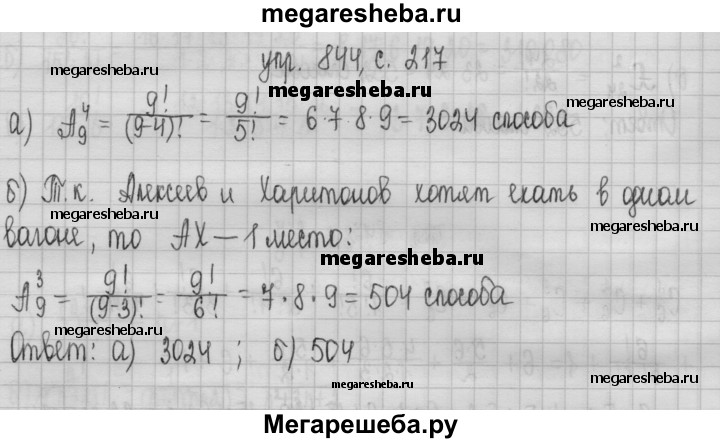 megaresheba.ru
упр. 844, с. 217
megaresheba.ru
megaresheba.ru
megaresheba.ru
а) A₉⁴ = 9!/(9-4)! = 9!/5! = 6·7·8·9 = 3024 способа
megaresheba.ru
б) Т.к. Алексеев и Харитонов хотят ехать в одном
megaresheba.ru
megaresheba.ru
вагоне, то АХ — 1 место:
megaresheba.ru
A₉³ = 9!/(9-3)! = 9!/6! = 7·8·9 = 504 способа
megaresheba.ru
Ответ: а) 3024 ; б) 504
megaresheba.ru
megaresheba.ru
Мегарешеба.ру